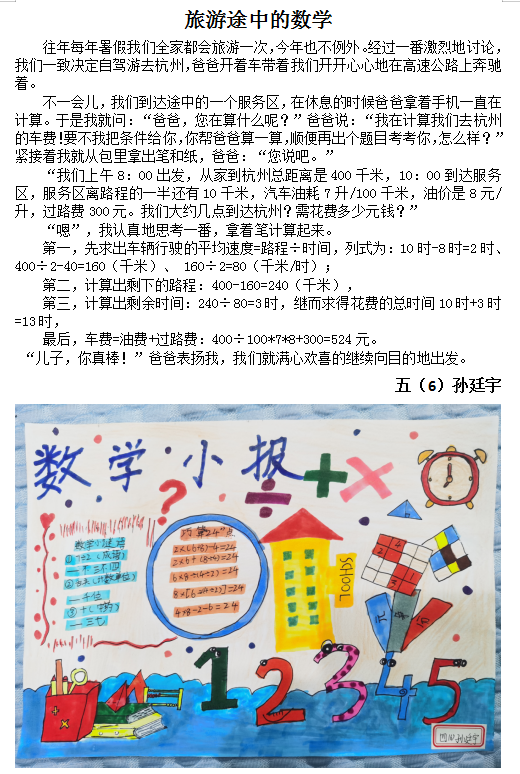 旅游途中的数学
往年每年暑假我们全家都会旅游一次,今年也不例外。经过一番激烈地讨论,
我们一致决定自驾游去杭州,爸爸开着车带着我们开开心心地在高速公路上奔驰
着。
不一会儿，我们到达途中的一个服务区，在休息的时候爸爸拿着手机一直在
计算。于是我就问：“爸爸，您在算什么呢？”爸爸说：“我在计算我们去杭州
的车费!要不我把条件给你,你帮爸爸算一算,顺便再出个题目考考你,怎么样？”
紧接着我就从包里拿出笔和纸，爸爸：“您说吧。”
“我们上午 8：00 出发，从家到杭州总距离是 400 千米，10：00 到达服务
区，服务区离路程的一半还有 10 千米，汽车油耗 7 升/100 千米，油价是 8 元/
升，过路费 300 元。我们大约几点到达杭州？需花费多少元钱？”
“嗯”，我认真地思考一番，拿着笔计算起来。
第一，先求出车辆行驶的平均速度=路程÷时间，列式为：10 时-8 时=2 时、
400÷2-40=160（千米）、 160÷2=80（千米/时）；
第二，计算出剩下的路程：400-160=240（千米），
第三，计算出剩余时间：240÷80=3 时，继而求得花费的总时间 10 时+3 时
=13 时，
最后，车费=油费+过路费：400÷100*7*8+300=524 元。
“儿子，你真棒！”爸爸表扬我，我们就满心欢喜的继续向目的地出发。
五（6）孙廷宇
数学小报
数学小谜语
24点
2×6+(8+4)=24
6×8÷(4÷2)=24
4×8-2-6=24
SCHOOL
1 2 3 4 5
孙廷宇